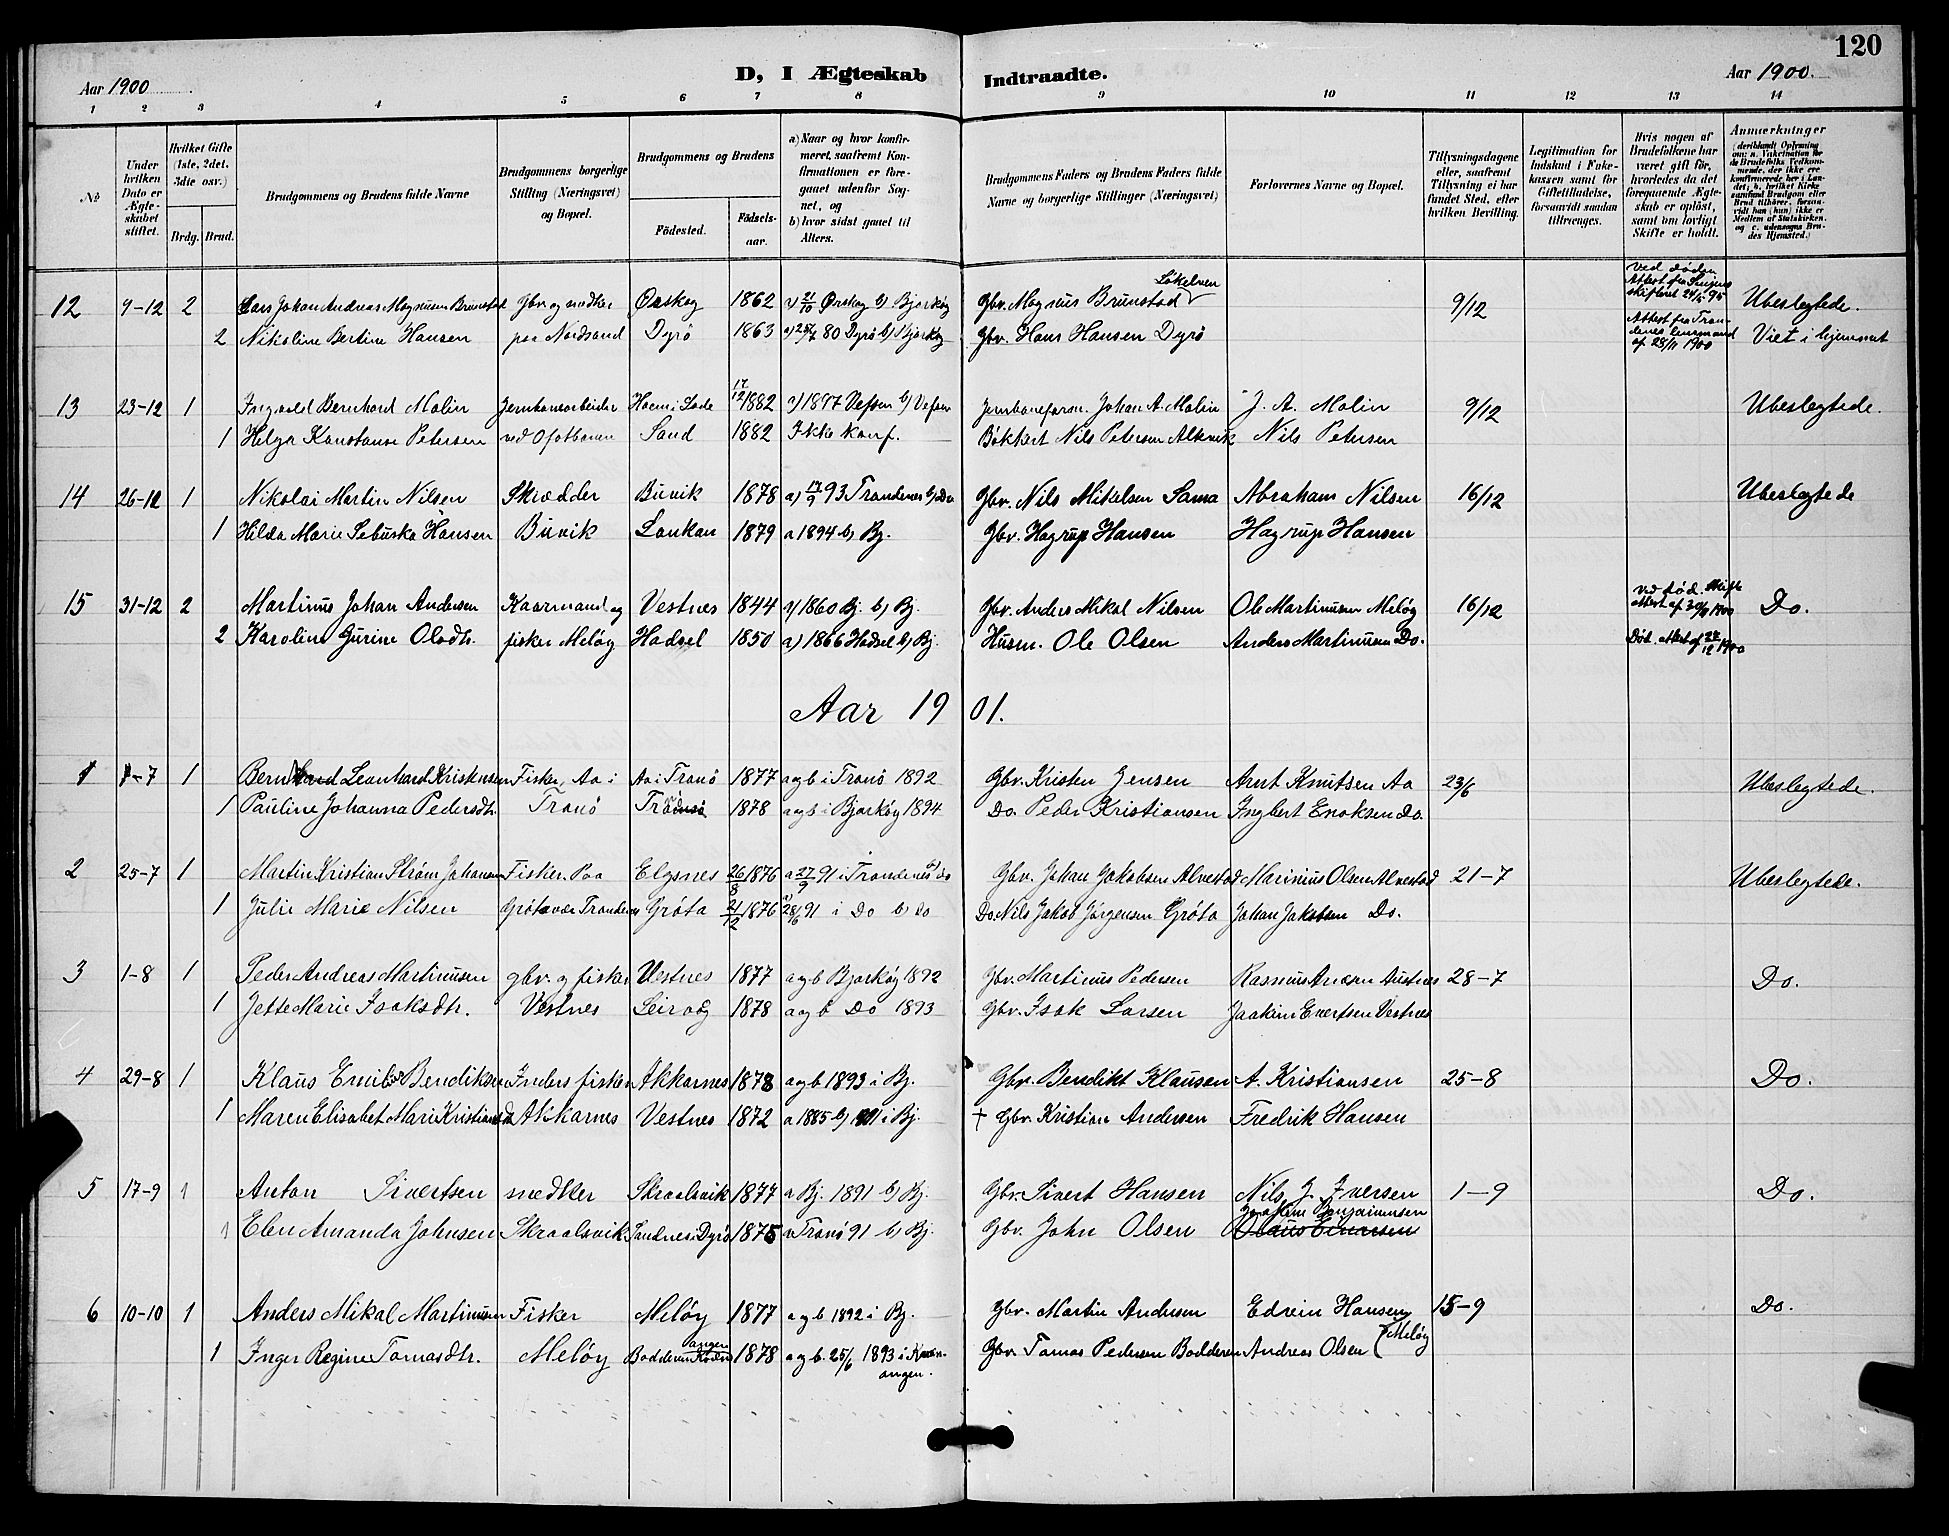 120
D, I Ægteskab Indtraadte.
Aar 1900
Aar 1900.
1 2 3 4 5 6 7 8 9 10 11 12 13 14
No
Under hvilken Dato er Ægteskabet stiftet.
Hvilket Gifte (1ste, 2det, 3die osv.)
Brdg. Brud.
Brudgommens og Brudens fulde Navne
Brudgommens borgerlige Stilling (Næringsvei) og Bopæl.
Brudgommens og Brudens
Födested. Födselsaar.
a) Naar og hvor konfirmeret, saafremt Konfirmationen er foregaaet udenfor Sognet, og
b) hvor sidst gaaet til Alters.
Brudgommens Faders og Brudens Faders fulde Navne og borgerlige Stillinger (Næringsvei)
Forlovernes Navne og Bopæl.
Tillysningsdagene eller, saafremt Tillysning ei har fundet Sted, efter hvilken Bevilling.
Legitimation for Indskud i Enkekassen samt for Giftetilladelse, forsaavidt saadan tiltrænges.
Hvis nogen af Brudefolkene har været gift för, hvorledes da det foregaaende Ægteskab er oplöst, samt om lovligt Skifte er holdt.
Anmærkninger (deriblandt Oplysning om: a. Vakcination for de Brudefolks Vedkommende, der ikke ere konfirmerede her i Landet; b. hvilket Kirkesamfund Brudgom eller Brud tilhörer, forsaavidt han (hun) ikke er Medlem af Statskirken, og c. udensogns Brudes Hjemsted.)
12 9-12 2 Lars Johan Andreas Magnusen Brunstad Gbr. og snedker Ørskog 1862 a) 21/10 Ørskog b) Bjarkøy Gbr. Magnus Brunstad Søkelven 9/12 Ved døden Attest fra Senjens skifteret 24/5 95 Ubeslegtede.
2 Nikoline Bertine Hansen paa Nordsand Dyrø 1863 80 Dyrø b) Bjarkøy Gbr. Hans Hansen Dyrø Attest fra Trondenes lensmand af 28/11 1900 Viet i hjemmet
13 23-12 1 Ingvald Bernhard Molin Jernbanearbeider 17/12 1882 a) 1897 Vefsen b) Vefsen Johan A. Molin J. A. Molin 9/12 Ubeslegtede.
1 Helga Konstanse Petersen ved Ofotbanen Sand 1882 Ikke konf. Nils Petersen Nils Petersen
14 26-12 1 Nikolai Martin Nilsen Skrædder Buvik 1878 a) 17/9 93 Trondenes b) Do Gbr. Nils Mikelsen Sama Abraham Nilsen 16/12 Ubeslegtede
1 Hilda Marie Sebuska Hansen Buvik Laukan 1879 a 1894 b) Bj. Gbr. Hagrup Hansen Hagrup Hansen
15 31-12 2 Martinus Johan Andersen Kaarmand og Vestnes 1844 a) 1860 Bj. b) Bj. Gbr. Anders Mikal Nilsen Ole Martinusen Meløy 16/12 Ved død. Skifte attest af 1900 Do.
2 Karoline Gurine Olsdtr. fisker Meløy Hadsel 1850 a) 1866 Hadsel b) Bj. Husm. Ole Olsen Anders Martinusen Do. Død. Attest af 22/12 1900
Aar 1901.
1 1-7 1 Bernhard Leonhard Kristensen Fisker, Aa i Aa i Tranø 1877 a og b i Tranø 1892 Gbr. Kristen Jensen Arnt Knutsen Aa 23/6 Ubeslegtede.
1 Pauline Johanna Pedersdtr. Tranø 1878 a og b i Bjarkøy 1894 Do. Peder Kristiansen Ingbert Enoksen Do.
2 25-7 1 Martin Kristian Strøm Johansen Fisker. Paa Elgsnes 26/8 1876 a 27/9 91 i Trondenes b) do Gbr. Johan Jakobsen Alvestad Marinius Olsen Alvestad 21-7 Ubeslegtede.
1 Julie Marie Nilsen Grøtavær Trondenes Grøta 21/12 1876 28/6 91 i Do b) Do Do. Nils Jakob Jørgensen Grøta Johan Jakobsen Do.
3 1-8 1 Peder Andreas Martinusen gbr. og fisker Vestnes 1877 a og b Bjarkøy 1892 Gbr. Martinus Pedersen Rasmus Austnes 28-7 Do.
1 Jette Marie Isaksdtr. Vestnes Leirvåg 1878 a og b Do 1893 Gbr. Isak Larsen Joakim Evertsen Vestnes
4 29-8 1 Klaus Emil Bendiksen Inders fisker Akkarnes 1878 a og b 1893 i Bj. Gbr. Bendikt Klausen A. Kristiansen 25-8 Do.
1 Maren Elisabet Marie Kristiansdtr Akkarnes Vestnes 1872 a 1885 b) 1901 i Bj. † Gbr. Kristian Andersen Fredrik Hansen
5 17-9 1 Anton Sivertsen snedker Skraalsvik 1877 a Bj. 1891 b) Bj. Gbr. Sivert Hansen Nils J. Iversen 1-9 Do.
1 Elen Amanda Johnsen Skraalsvik Sandnes i Dyrø 1875 a Tranø 91 b) Bj. Gbr. John Olsen Benjaminsen
6 10-10 1 Anders Mikal Martinusen Fisker Meløy 1877 a og b 1892 i Bj. Gbr. Martin Andersen Edvin Hansen 15-9 Do.
1 Inger Regine Tomasdtr. Meløy Badderen Kvænangen 1878 a og b. 25/6 1893 i Kvænangen. Gbr. Tomas Pedersen Badderen Andreas Olsen (Meløy